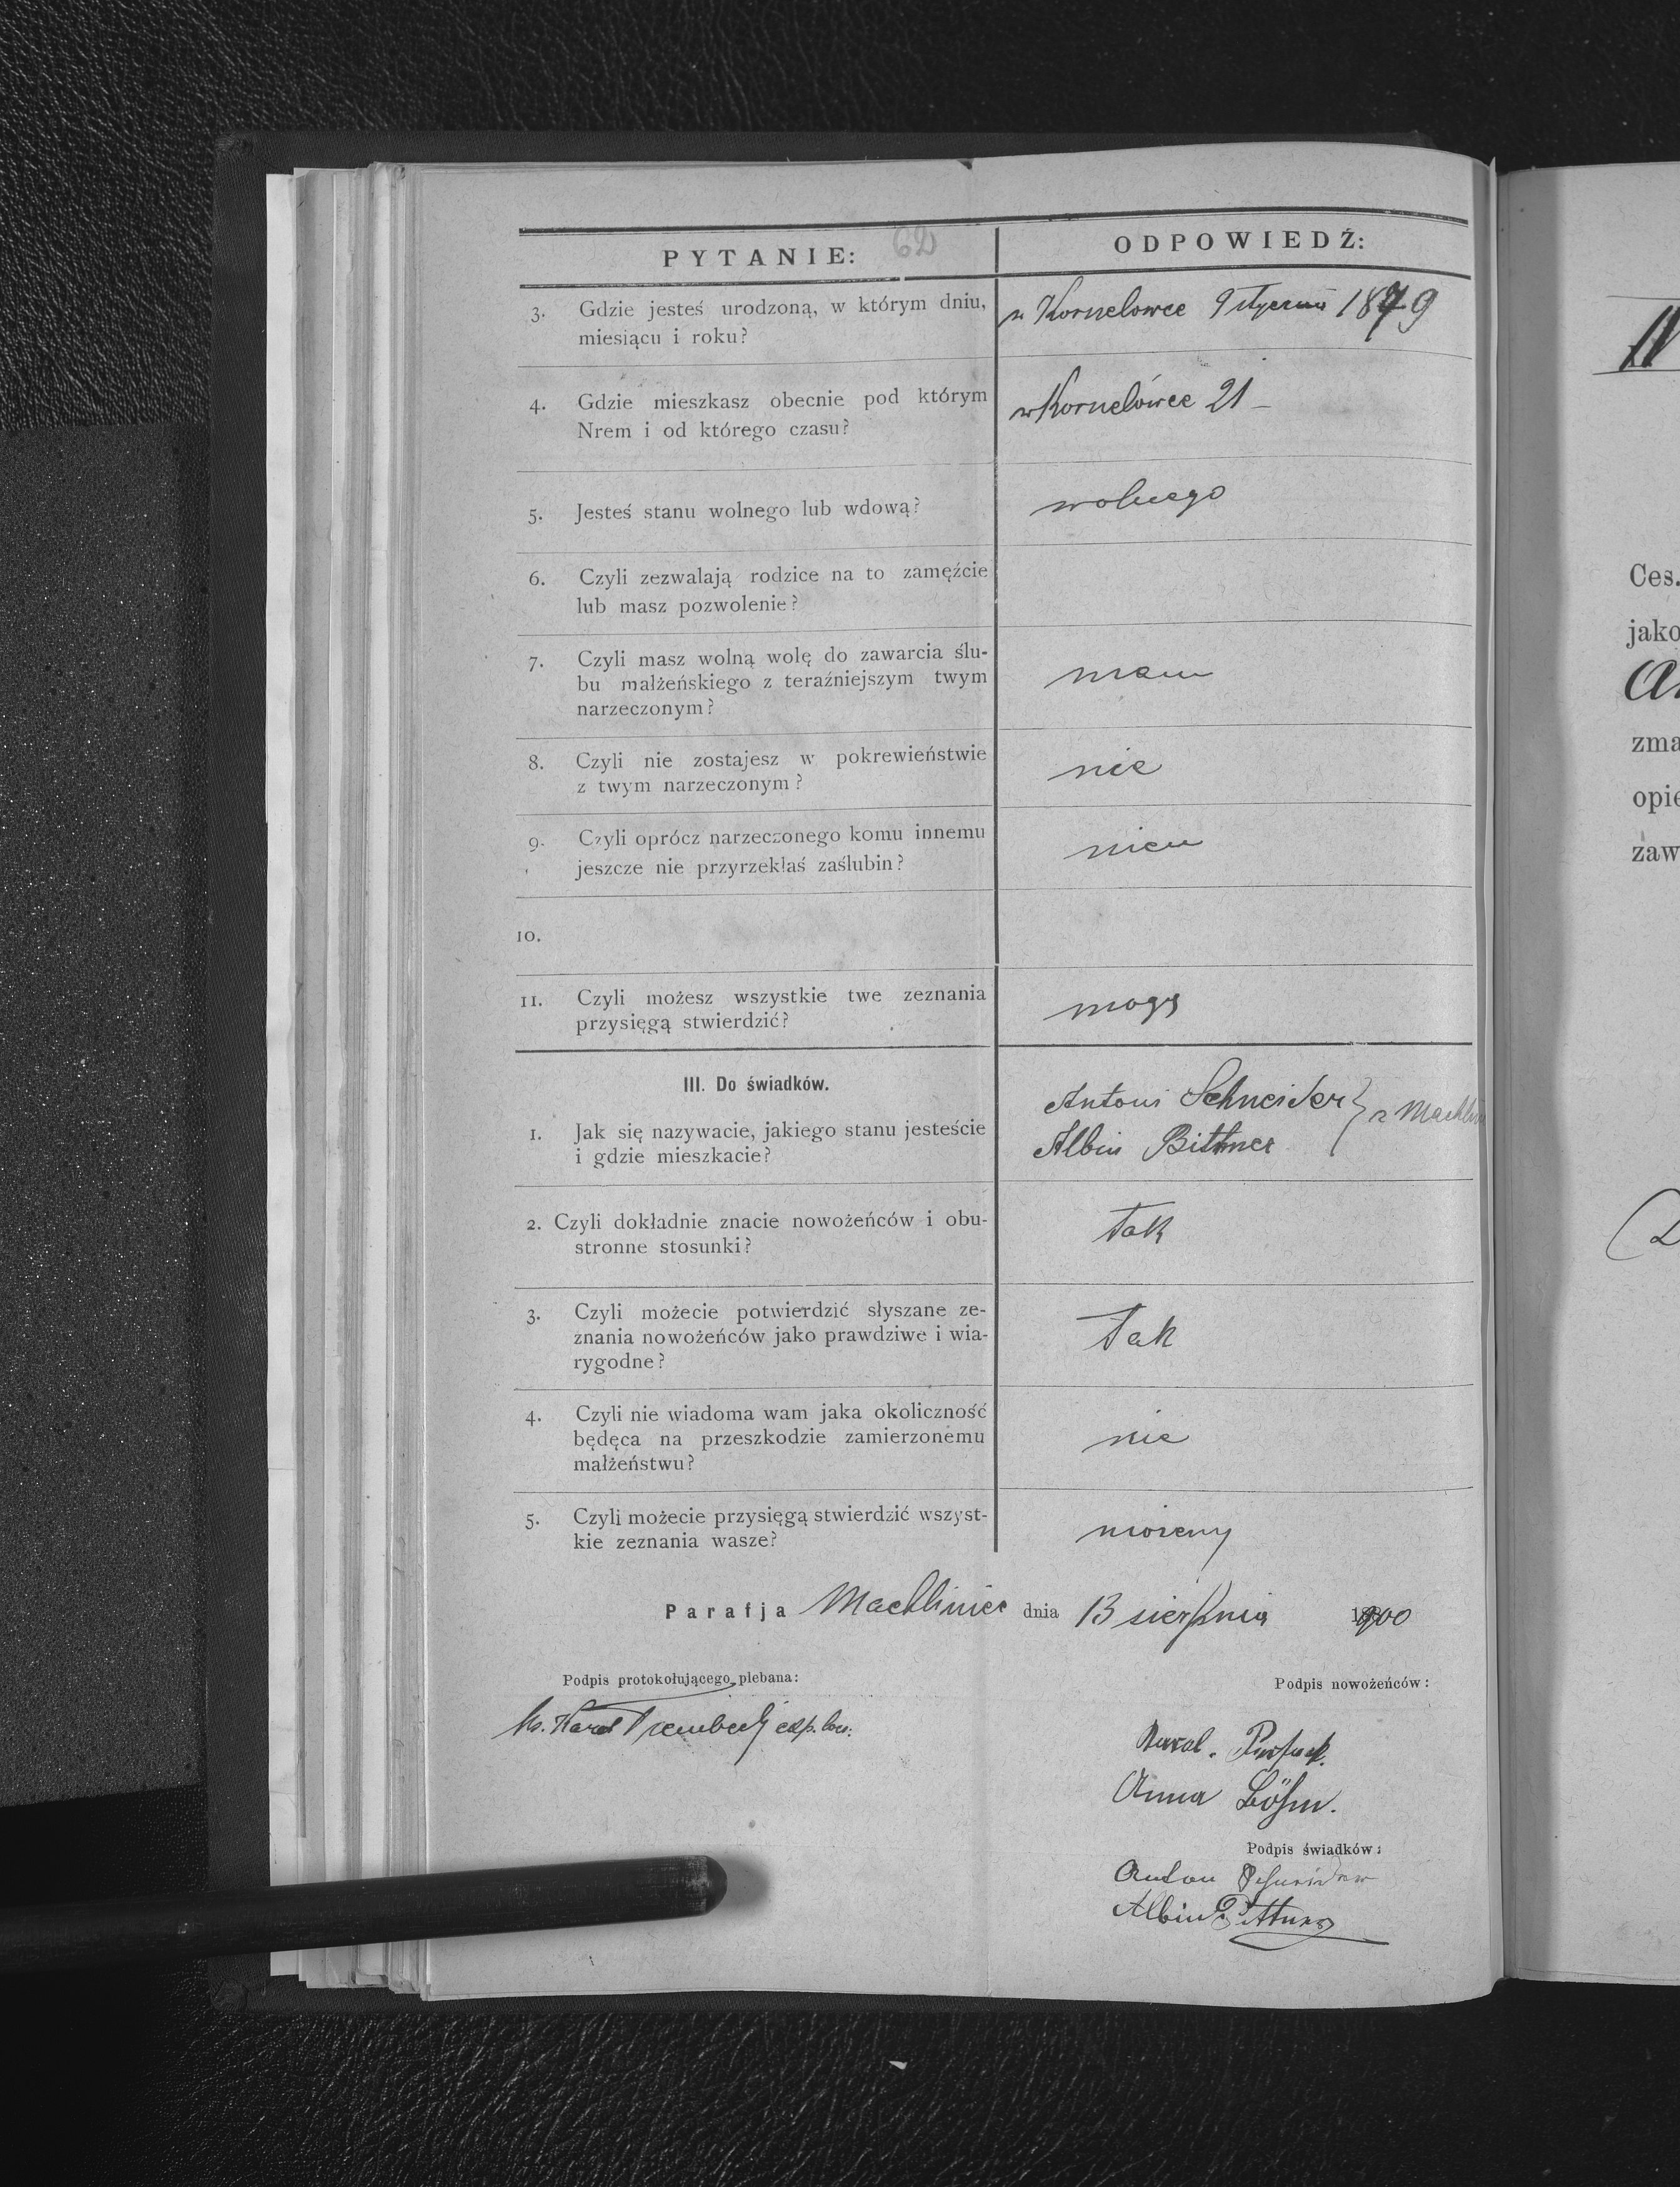 62
PYTANIE:
ODPOWIEDŹ:
3. Gdzie jesteś urodzoną, w którym dniu,
miesiącu i roku?
w Kornelowce 9 stycznia 1879
4. Gdzie mieszkasz obecnie pod którym
Nrem i od którego czasu?
w Kornelówce 21 –
5. Jesteś stanu wolnego lub wdową?
wolnego
6. Czyli zezwalają rodzice na to zamęźcie
lub masz pozwolenie?
7. Czyli masz wolną wolę do zawarcia ślu-
bu małżeńskiego z teraźniejszym twym
narzeczonym?
mam
8. Czyli nie zostajesz w pokrewieństwie
z twym narzeczonym?
nie
9. Czyli oprócz narzeczonego komu innemu
jeszcze nie przyrzekłaś zaślubin?
10.
11. Czyli możesz wszystkie twe zeznania
przysięgą stwierdzić?
mogę
III. Do świadków.
1. Jak się nazywacie, jakiego stanu jesteście
i gdzie mieszkacie?
Antoni Schneider
Albin Bittner
z
2. Czyli dokładnie znacie nowożeńców i obu-
stronne stosunki?
tak
3. Czyli możecie potwierdzić słyszane ze-
znania nowożeńców jako prawdziwe i wia-
rygodne?
tak
4. Czyli nie wiadoma wam jaka okoliczność
będęca na przeszkodzie zamierzonemu
małżeństwu?
nie
5. Czyli możecie przysięgą stwierdzić wszyst-
kie zeznania wasze?
możemy
Parafja Machliniec dnia 13 sierpnia 1900
Podpis protokołującego plebana:
Podpis nowożeńców:
Karol
Anna Böhm.
Podpis świadków:
Anton Schneider
Albin Bittner
Ces.
jako
zma
opie
zaw